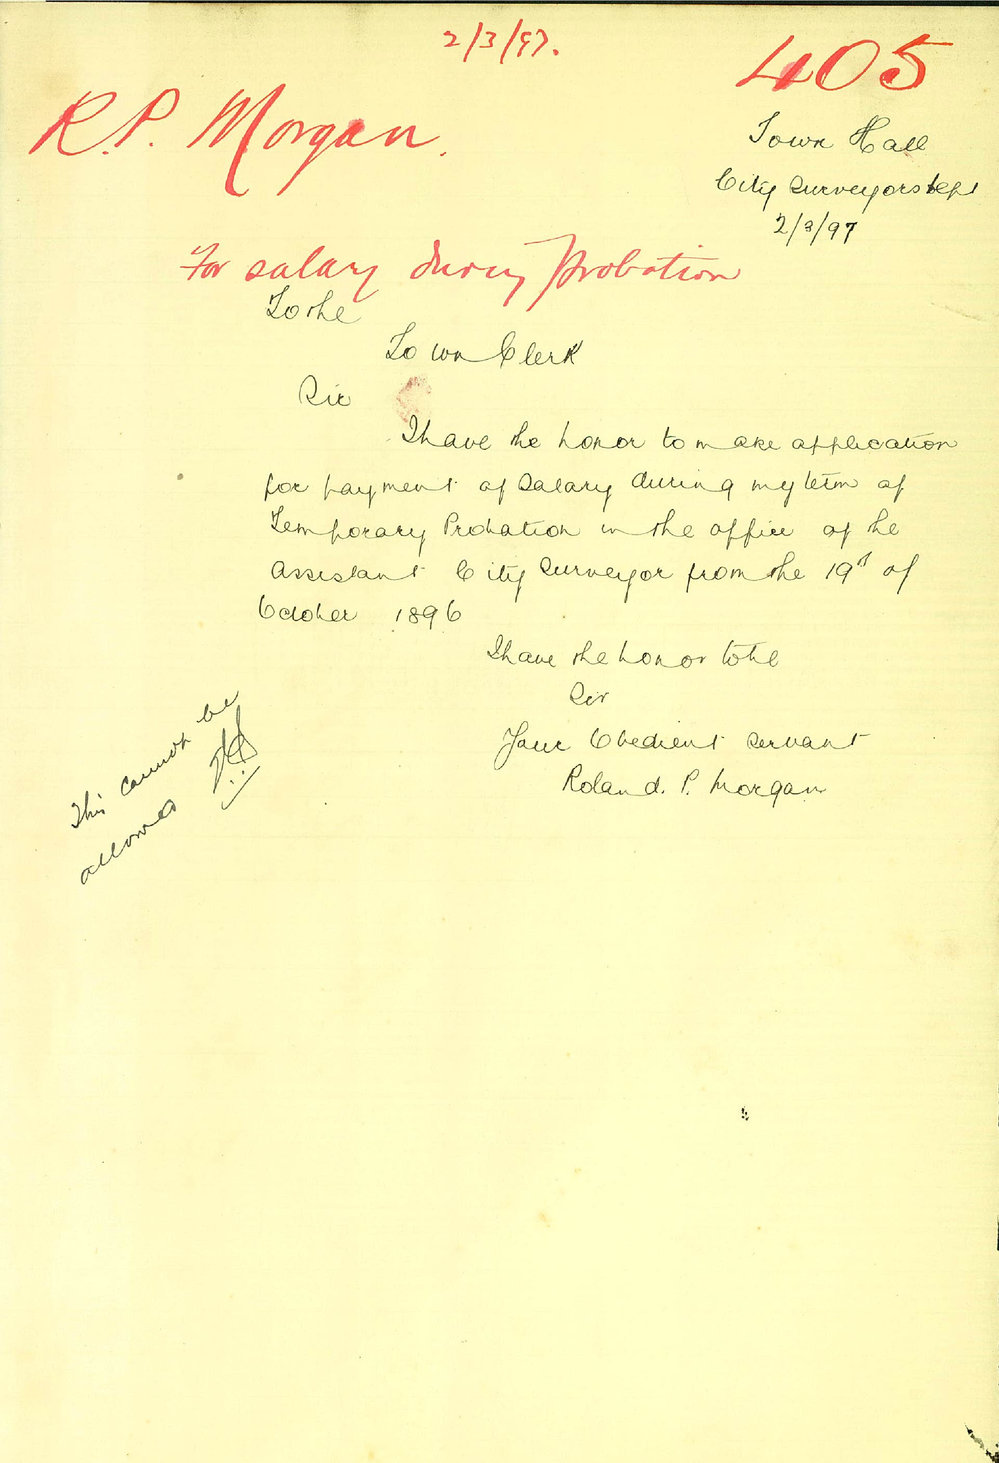 2/3/97.
405
R.P. Morgan.
Town Hall
City Surveyors Dept
2/3/97
For salary during Probation
To the
Town Clerk
Sir
I have the honor to make application
for payment of Salary during my term of
Temporary Probation in the office of the
Assistant City Surveyor from the 19th of
October 1896
I have the honor to be
Sir
Your Obedient Servant
Roland. P. Morgan
This cannot be
allowed